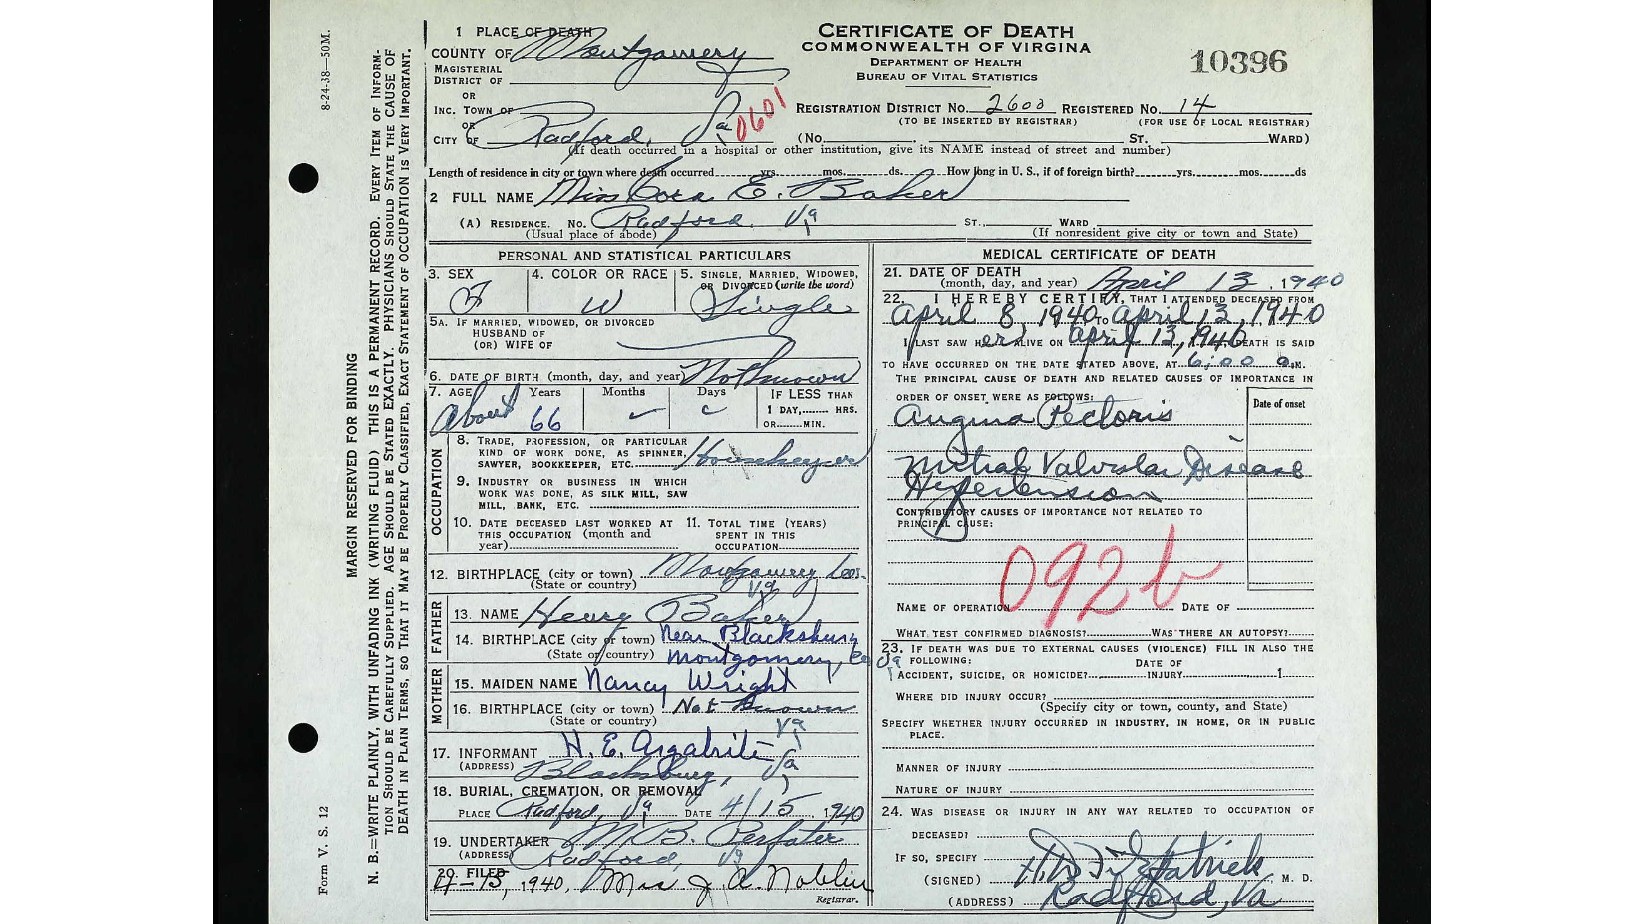 8-24-38—50M.
MARGIN RESERVED FOR BINDING
N. B.=WRITE PLAINLY, WITH UNFADING INK (WRITING FLUID) THIS IS A PERMANENT RECORD. EVERY ITEM OF INFORM-
TION SHOULD BE CAREFULLY SUPPLIED. AGE SHOULD BE STATED EXACTLY. PHYSICIANS SHOULD STATE THE CAUSE OF
DEATH IN PLAIN TERMS, SO THAT IT MAY BE PROPERLY CLASSIFIED, EXACT STATEMENT OF OCCUPATION IS VERY IMPORTANT.
Form V. S. 12
CERTIFICATE OF DEATH
COMMONWEALTH OF VIRGINA
DEPARTMENT OF HEALTH
BUREAU OF VITAL STATISTICS
10396
1 PLACE OF DEATH
COUNTY OF Montgomery
MAGISTERIAL
DISTRICT OF
OR
INC. TOWN OF
OR
CITY OF Radford, Va
0601
REGISTRATION DISTRICT NO. 2600 REGISTERED NO. 14
(TO BE INSERTED BY REGISTRAR) (FOR USE OF LOCAL REGISTRAR)
(NO. ST. WARD)
(If death occurred in a hospital or other institution, give its NAME instead of street and number)
Length of residence in city or town where death occurred yrs. mos. ds. How long in U. S., if of foreign birth? yrs. mos. ds
2 FULL NAME Miss Cora E. Baker
(A) RESIDENCE. NO. Radford Va ST., WARD
(Usual place of abode) (If nonresident give city or town and State)
PERSONAL AND STATISTICAL PARTICULARS
3. SEX
F
4. COLOR OR RACE
W
5. SINGLE, MARRIED, WIDOWED,
OR DIVORCED (write the word)
Single
5A. IF MARRIED, WIDOWED, OR DIVORCED
HUSBAND OF
(OR) WIFE OF
6. DATE OF BIRTH (month, day, and year) Not known
7. AGE Years Months Days IF LESS THAN
1 DAY, HRS.
OR MIN.
About 66
OCCUPATION
8. TRADE, PROFESSION, OR PARTICULAR
KIND OF WORK DONE, AS SPINNER,
SAWYER, BOOKKEEPER, ETC. Housekeeper
9. INDUSTRY OR BUSINESS IN WHICH
WORK WAS DONE, AS SILK MILL, SAW
MILL, BANK, ETC.
10. DATE DECEASED LAST WORKED AT
THIS OCCUPATION (month and
year)
11. TOTAL TIME (YEARS)
SPENT IN THIS
OCCUPATION
12. BIRTHPLACE (city or town) Montgomery
(State or country) Va
FATHER
13. NAME Henry Baker
14. BIRTHPLACE (city or town) Near Blacksburg
(State or country) Montgomery, Co Va
MOTHER
15. MAIDEN NAME Nancy Wright
16. BIRTHPLACE (city or town) Not known
(State or country) Va
17. INFORMANT H. E. Argabrite
(ADDRESS) Blacksburg, Va
18. BURIAL, CREMATION, OR REMOVAL
PLACE Radford, Va DATE 4/15, 1940
19. UNDERTAKER M B. Perfater
(ADDRESS) Radford Va
20. FILED
4-15, 1940, Mrs J. A. Noblin
Registrar.
MEDICAL CERTIFICATE OF DEATH
21. DATE OF DEATH
(month, day, and year) April 13, 1940
22. I HEREBY CERTIFY, THAT I ATTENDED DECEASED FROM
April 8, 1940 TO April 13, 1940
I LAST SAW HER ALIVE ON April 13, 1940 DEATH IS SAID
TO HAVE OCCURRED ON THE DATE STATED ABOVE, AT 6:00 A.M.
THE PRINCIPAL CAUSE OF DEATH AND RELATED CAUSES OF IMPORTANCE IN
ORDER OF ONSET WERE AS FOLLOWS:
Date of onset
Angina Pectoris
Mitral Valvular Disease
Hypertension
CONTRIBUTORY CAUSES OF IMPORTANCE NOT RELATED TO
PRINCIPAL CAUSE:
092b
NAME OF OPERATION DATE OF
WHAT TEST CONFIRMED DIAGNOSIS? WAS THERE AN AUTOPSY?
23. IF DEATH WAS DUE TO EXTERNAL CAUSES (VIOLENCE) FILL IN ALSO THE
FOLLOWING: DATE OF
ACCIDENT, SUICIDE, OR HOMICIDE? INJURY 1
WHERE DID INJURY OCCUR?
(Specify city or town, county, and State)
SPECIFY WHETHER INJURY OCCURRED IN INDUSTRY, IN HOME, OR IN PUBLIC
PLACE.
MANNER OF INJURY
NATURE OF INJURY
24. WAS DISEASE OR INJURY IN ANY WAY RELATED TO OCCUPATION OF
DECEASED?
IF SO, SPECIFY
(SIGNED) Fitzpatrick M. D.
(ADDRESS) Radford, Va